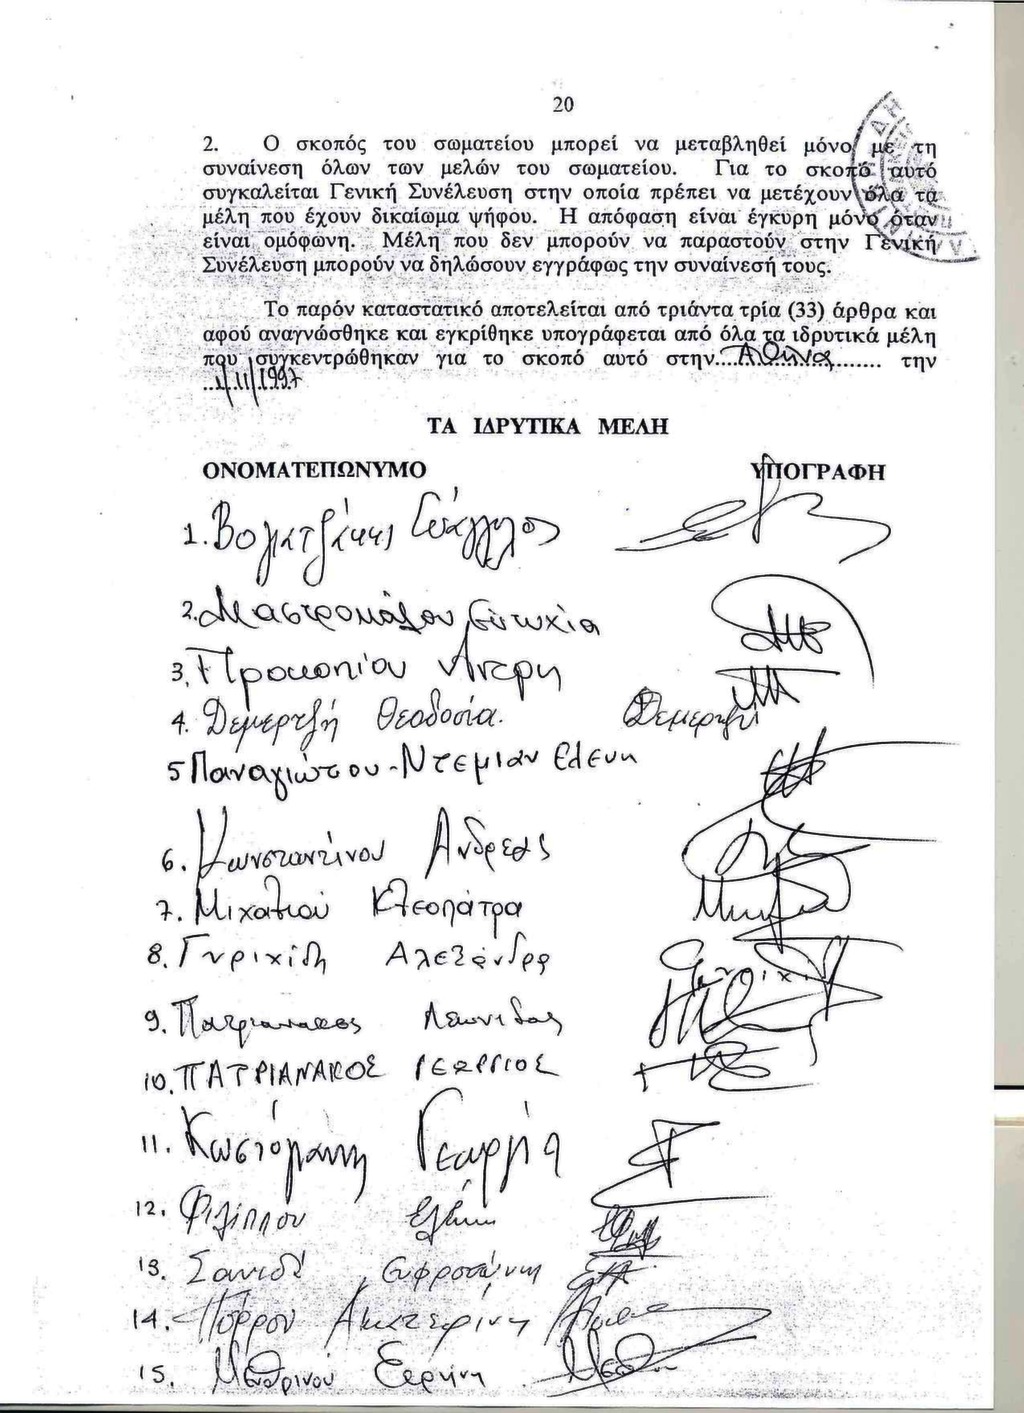 20
2. Ο σκοπός του σωματείου μπορεί να μεταβληθεί μόνο με τη
συναίνεση όλων των μελών του σωματείου. Για το σκοπό αυτό
συγκαλείται Γενική Συνέλευση στην οποία πρέπει να μετέχουν όλα τα
μέλη που έχουν δικαίωμα ψήφου. Η απόφαση είναι έγκυρη μόνο όταν
είναι ομόφωνη. Μέλη που δεν μπορούν να παραστούν στην Γενική
Συνέλευση μπορούν να δηλώσουν εγγράφως την συναίνεσή τους.
Το παρόν καταστατικό αποτελείται από τριάντα τρία (33) άρθρα και
αφού αναγνώσθηκε και εγκρίθηκε υπογράφεται από όλα τα ιδρυτικά μέλη
που συγκεντρώθηκαν για το σκοπό αυτό στην....Αθήνα........ την
..1/11/1997
ΤΑ ΙΔΡΥΤΙΚΑ ΜΕΛΗ
ΟΝΟΜΑΤΕΠΩΝΥΜΟ ΥΠΟΓΡΑΦΗ
1. Βογιατζάκης Ευάγγελος
2. Ευτυχία
3. Προκοπίου
4. Δεμερτζή Θεοδοσία. Δεμερτζή
5 Παναγιώτου - Ντεμιάν Ελένη
6. Κωνσταντίνου Ανδρέας
7. Μιχαλιού Κλεοπάτρα
8. Γυριχίδη Αλεξάνδρα
9. Πατριανάκος Λεωνίδας
10. ΠΑΤΡΙΑΝΑΚΟΣ ΓΕΩΡΓΙΟΣ
11. Κωστόγιαννη Γεωργία
12. Φιλίππου Ελένη
13. Σανιδά Ευφροσύνη
14. Πόρρου Αικατερίνη
15. Ειρήνη